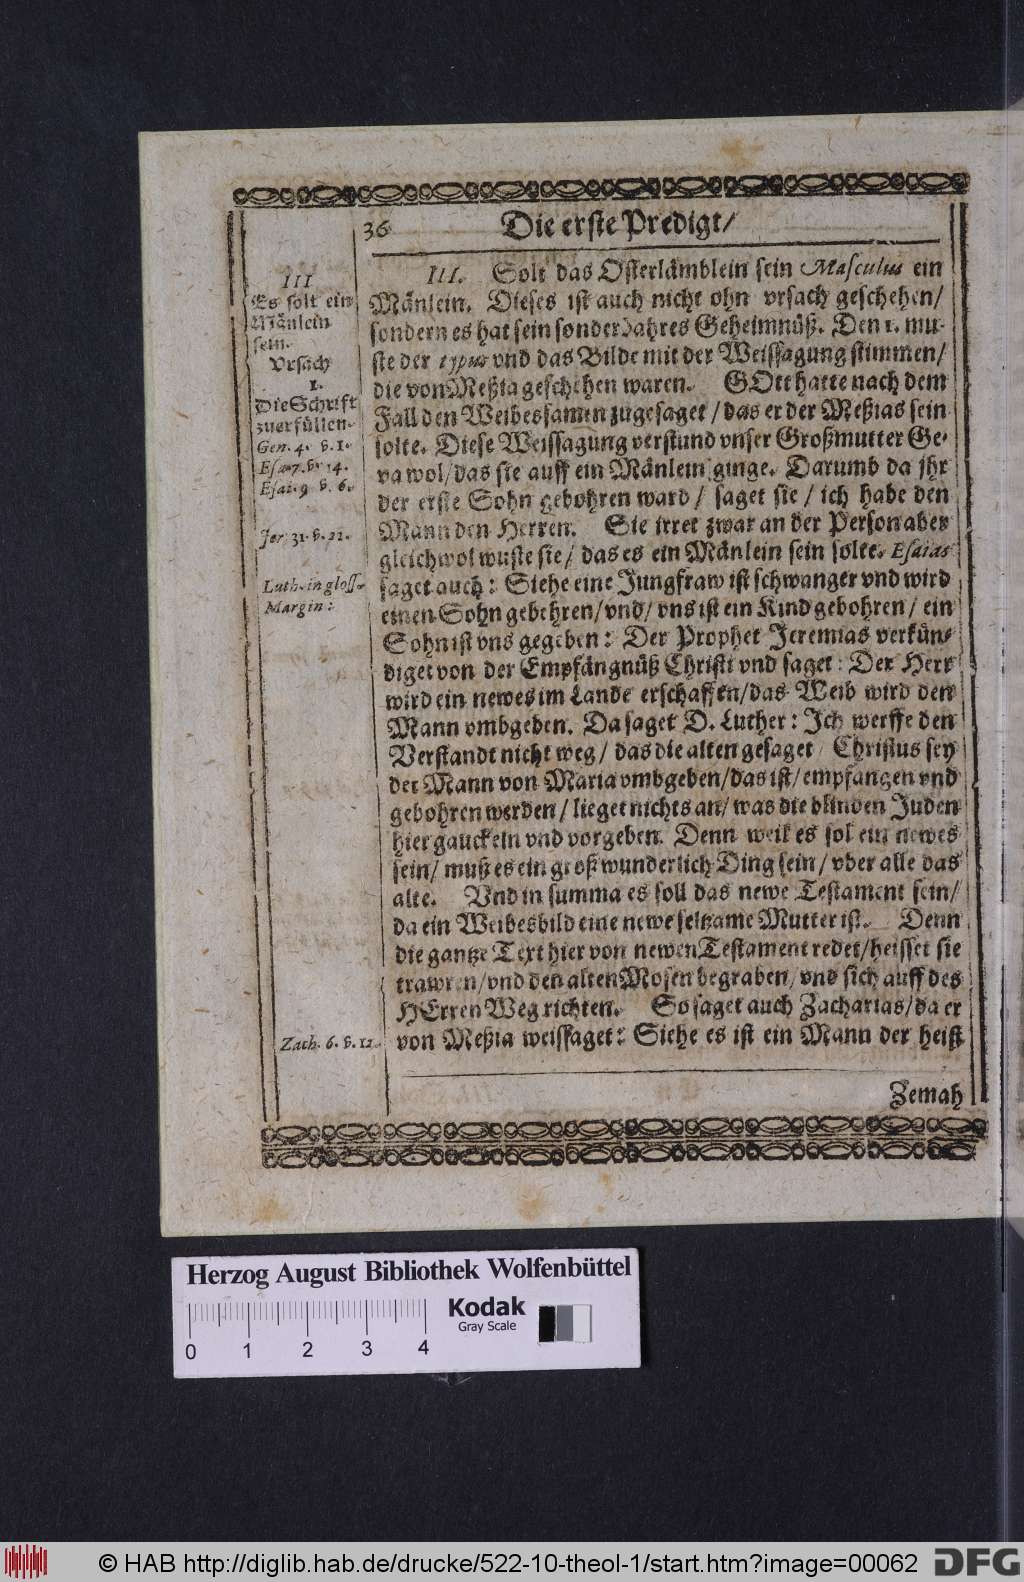 36 Die erste Predigt/
III
Es solt ein
Mänlein
sein.
Vrsach
1.
Die Schrift
zuerfüllen.
Gen. 4. v. 1.
Esa. 7. v. 14.
Esai. 9 v. 6.
Jer. 31. v. 22.
Luth. in gloss.
Margin:
Zach. 6. v. 12.
III. Solt das Osterlämblein sein Masculus ein
Mänlein. Dieses ist auch nicht ohn vrsach geschehen/
sondern es hat sein sonderbahres Geheimnüß. Den 1. mu-
ste der typus vnd das Bilde mit der Weissagung stimmen/
die von Meßia geschehen waren. GOtt hatte nach dem
Fall den Weibessamen zugesaget/ das er der Meßias sein
solte. Diese Weissagung verstund vnser Großmutter He-
va wol/ das sie auff ein Mänlein ginge. Darumb da jhr
der erste Sohn gebohren ward/ saget sie/ ich habe den
Mann den Herren. Sie irret zwar an der Person aber
gleichwol wuste sie/ das es ein Mänlein sein solte. Esaias
saget auch: Siehe eine Jungfraw ist schwanger vnd wird
einen Sohn gebehren/ vnd/ vns ist ein Kind gebohren/ ein
Sohn ist vns gegeben: Der Prophet Jeremias verkün-
diget von der Empfängnüß Christi vnd saget: Der Herr
wird ein newes im Lande erschaffen/ das Weib wird den
Mann vmbgeben. Da saget D. Luther: Ich werffe den
Verstandt nicht weg/ das die alten gesaget/ Christus sey
der Mann von Maria vmbgeben/ das ist/ empfangen vnd
gebohren werden/ lieget nichts an/ was die blinden Juden
hier gauckeln vnd vorgeben. Denn weil es sol ein newes
sein/ muß es ein groß wunderlich Ding sein/ vber alle das
alte. Vnd in summa es soll das newe Testament sein/
da ein Weibesbild eine newe seltzame Mutter ist. Denn
die gantze Text hier von newen Testament redet/ heisset sie
trawren/ vnd den alten Mosen begraben/ vnd sich auff des
HErren Weg richten. So saget auch Zacharias/ da er
von Meßia weissaget: Siehe es ist ein Mann der heist
Zemah
Herzog August Bibliothek Wolfenbüttel
Kodak
Gray Scale
0 1 2 3 4
© HAB http://diglib.hab.de/drucke/522-10-theol-1/start.htm?image=00062
DFG